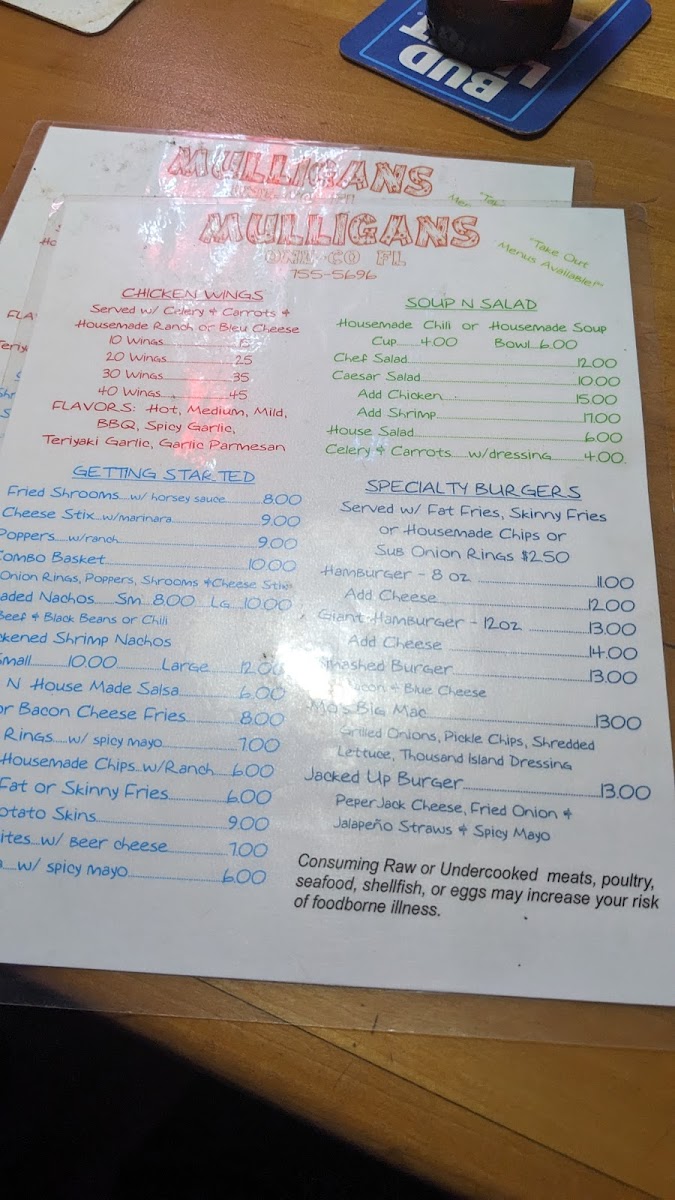 BUD
MULLIGANS
MULLIGANS
755-5696
"Take Out
Menus Available!"
CHICKEN WINGS
Served w/ Celery & Carrots &
Housemade Ranch or Bleu Cheese
10 Wings
20 Wings 25
30 Wings 35
40 Wings 45
FLAVORS: Hot, Medium, Mild,
BBQ, Spicy Garlic,
Teriyaki Garlic, Garlic Parmesan
GETTING STARTED
Fried Shrooms w/ horsey sauce 8.00
Cheese Stix w/marinara 9.00
Poppers w/ranch 9.00
Combo Basket 10.00
Onion Rings, Poppers, Shrooms & Cheese Stix
aded Nachos Sm 8.00 LG 10.00
Beef & Black Beans or Chili
ckened Shrimp Nachos
Small 10.00 Large 12.00
N House Made Salsa 6.00
or Bacon Cheese Fries 8.00
Rings w/ spicy mayo 7.00
Housemade Chips w/Ranch 6.00
Fat or Skinny Fries 6.00
otato Skins 9.00
ites w/ Beer cheese 7.00
w/ spicy mayo 6.00
SOUP N SALAD
Housemade Chili or Housemade Soup
Cup 4.00 Bowl 6.00
Chef Salad 12.00
Caesar Salad 10.00
Add Chicken 15.00
Add Shrimp 17.00
House Salad 6.00
Celery & Carrots w/dressing 4.00
SPECIALTY BURGERS
Served w/ Fat Fries, Skinny Fries
or Housemade Chips or
Sub Onion Rings $2.50
Hamburger - 8 oz 11.00
Add Cheese 12.00
Giant Hamburger - 12oz 13.00
Add Cheese 14.00
Smashed Burger 13.00
Bacon & Blue Cheese
Mo's Big Mac 13.00
Grilled Onions, Pickle Chips, Shredded
Lettuce, Thousand Island Dressing
Jacked Up Burger 13.00
PeperJack Cheese, Fried Onion &
Jalapeño Straws & Spicy Mayo
Consuming Raw or Undercooked meats, poultry,
seafood, shellfish, or eggs may increase your risk
of foodborne illness.